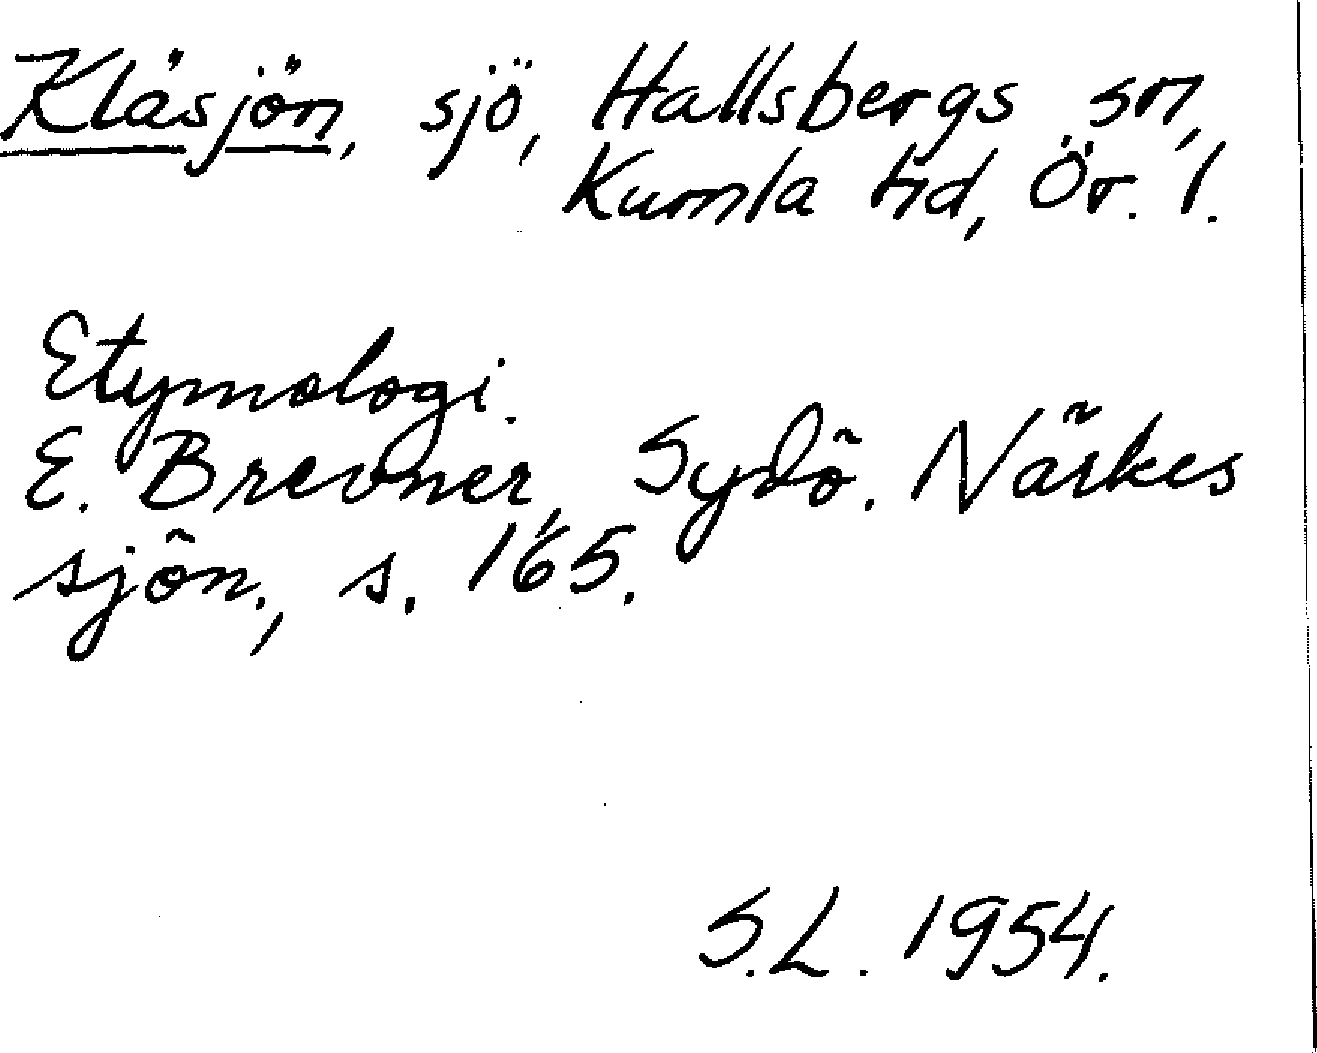 Kläsjön, sjö, Hallsbergs sn,
Kumla hd, Ör. l.
Etymologi.
E. Brevner, Sydö. Närkes
sjön., s. 165.
S.L. 1954.